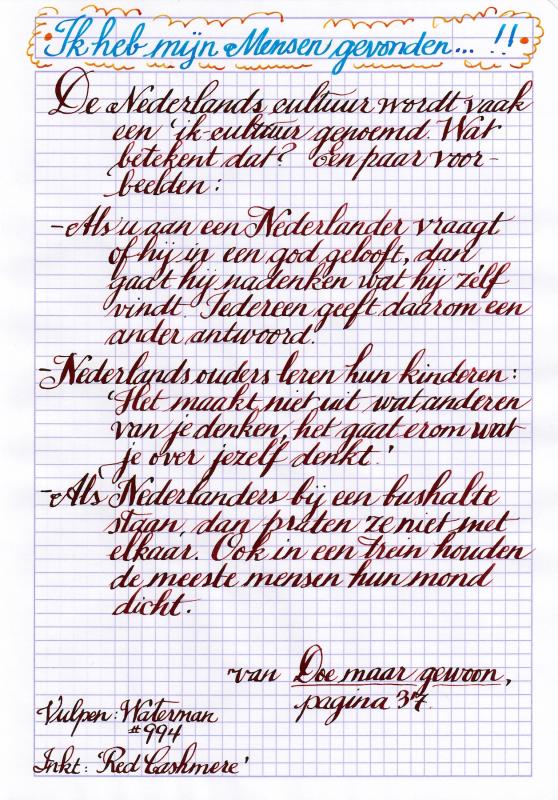 Ik heb mijn Mensen gevonden... !!
De Nederlands cultuur wordt vaak
een 'ik-cultuur genoemd. Wat
betekent dat? Een paar voor-
beelden:
-Als u aan een Nederlander vraagt
of hij in een god gelooft, dan
gaat hij nadenken wat hij zélf
vindt. Iedereen geeft daarom een
ander antwoord.
-Nederlands ouders leren hun kinderen:
'Het maakt niet uit wat anderen
van je denken, het gaat erom wat
je over jezelf denkt.'
-Als Nederlanders bij een bushalte
staan, dan praten ze niet met
elkaar. Ook in een trein houden
de meeste mensen hun mond
dicht.
van Doe maar gewoon,
pagina 37.
Vulpen: Waterman
#994
Inkt: 'Red Cashmere'